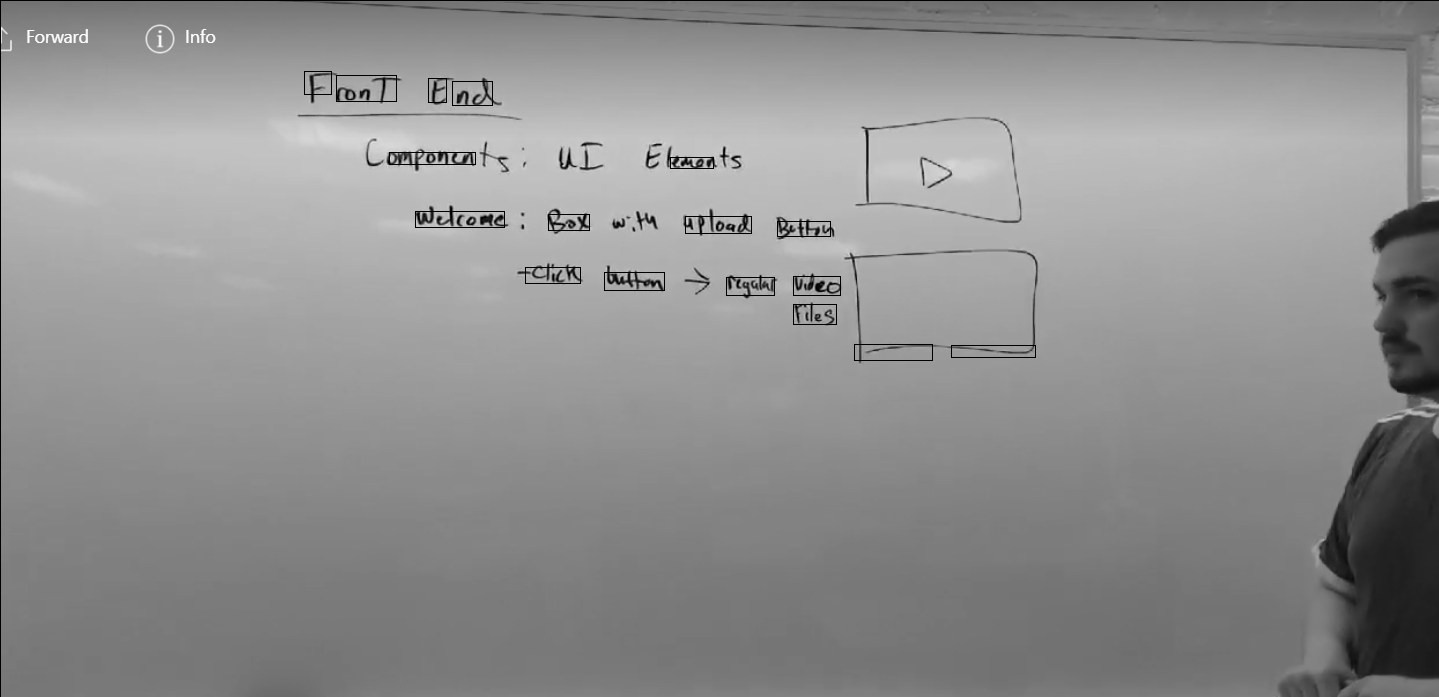 Forward Info
FronT End
Components: UI Elements
Welcome: Box with upload Button
-Click button → regular video
Files